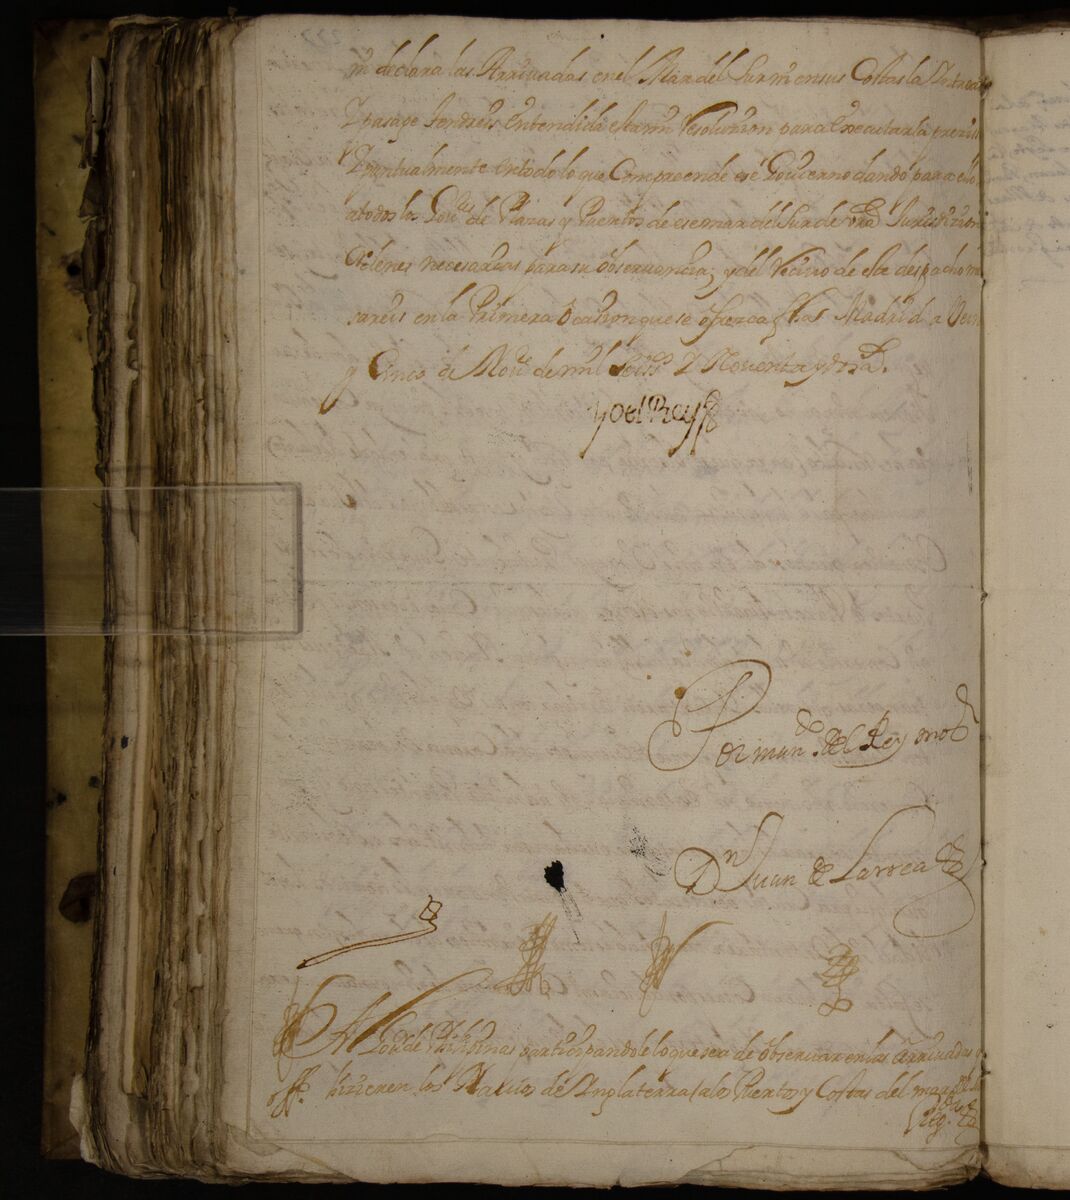 se declara las Arrivadas en el Mar del Sur ni en sus Costas la
Y pasage tendreis entendida esta mi resolucion para executarla precissa
Y puntualmente en todo lo que Comprende ese Govierno dando para ello
a todos los Govres de Plazas y Puertos de ese mar del Sur de vra Jurisdizion
ordenes necesarias para su observancia; y del recivo de este despacho me
sareis en la Primera ocasion que se ofrezca fha Madrid a Vein
y Cinco de Nove de mil Seiss Y Noventa y
Yo el Rey
Por mando del Rey nro sr
Dn Juan de Larrea
Al Govr de Philipinas participandole lo que se a de observar en las Arrivadas q
offo hizieren los Navios de Inglaterra a los Puertos y Costas del mar